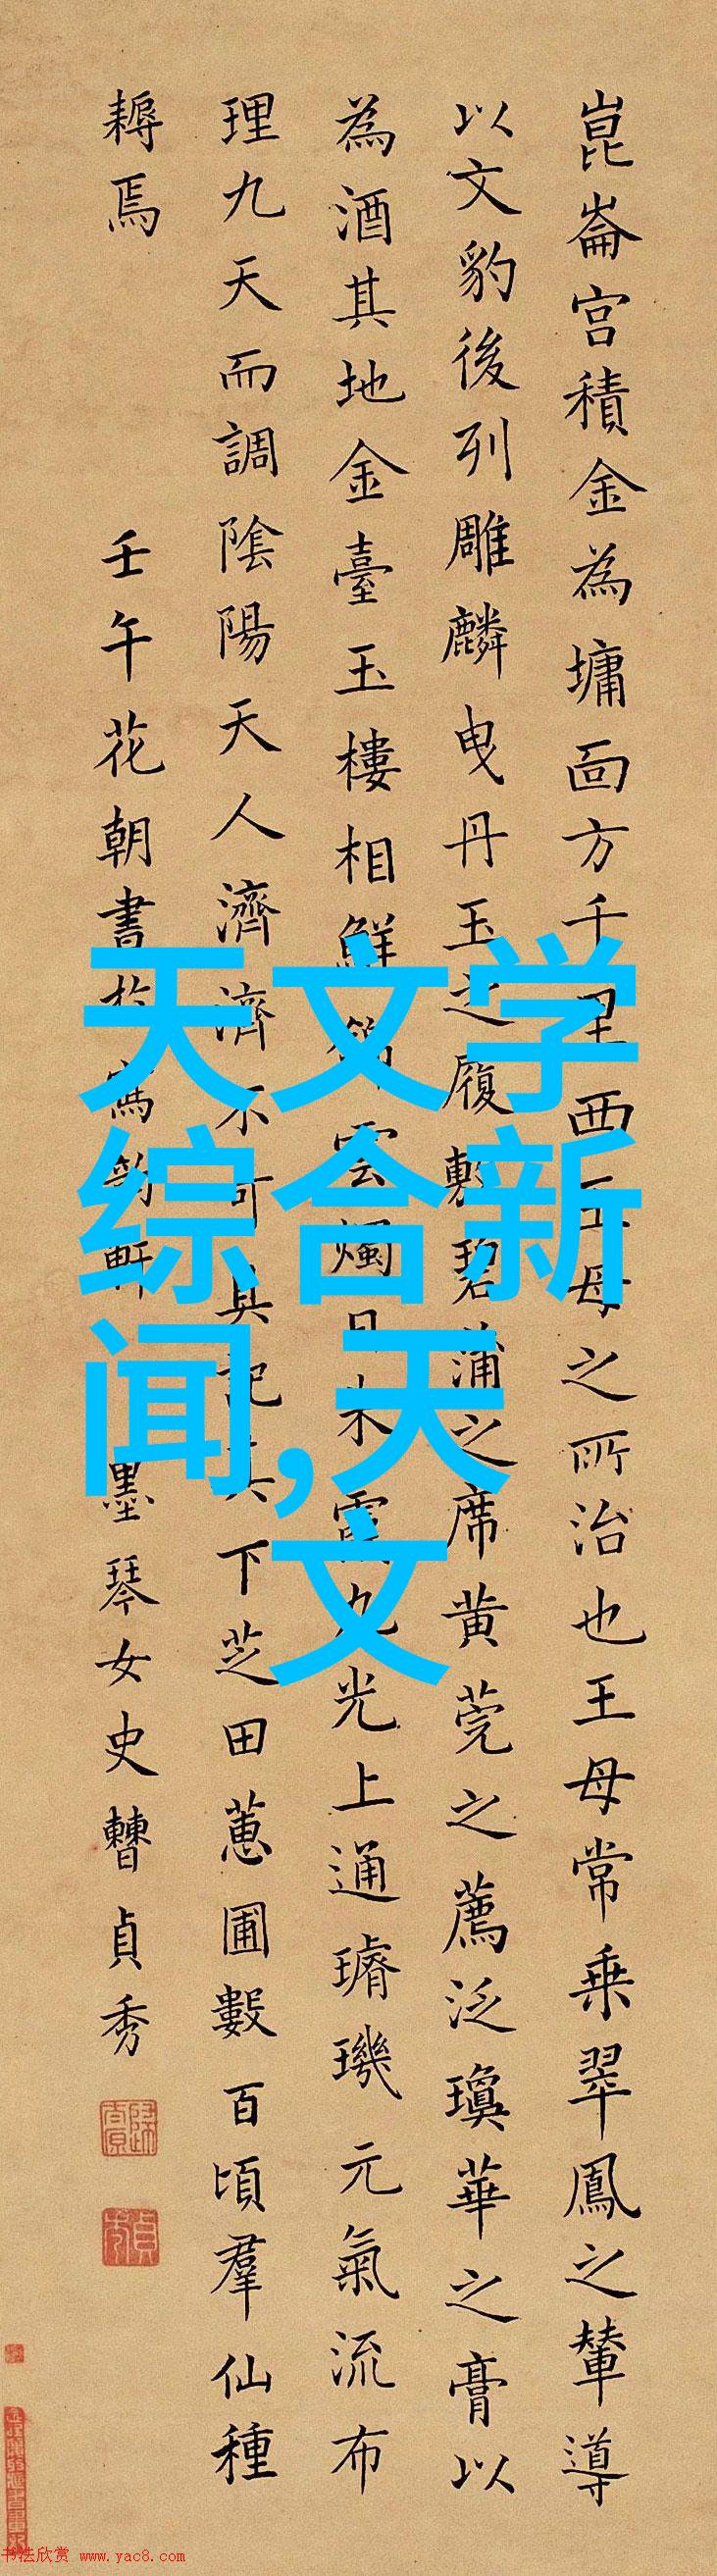 崑崙宫積金為墉面方千里西王母之所治也王母常乗翠鳳之輦導
以文豹後列雕麟曳丹玉之履敷碧蒲之席黄莞之薦泛瓊華之膏以
為酒其地金臺玉樓相鮮雲燭日光九光上通璿璣元氣流布
理九天而調陰陽天人濟濟不可具記其下芝田蕙圃數百頃羣仙種
耨焉
壬午花朝書於寫韵軒 墨琴女史曹貞秀
天文学
综合新
闻,天
文
书法欣赏 www.yac8.com